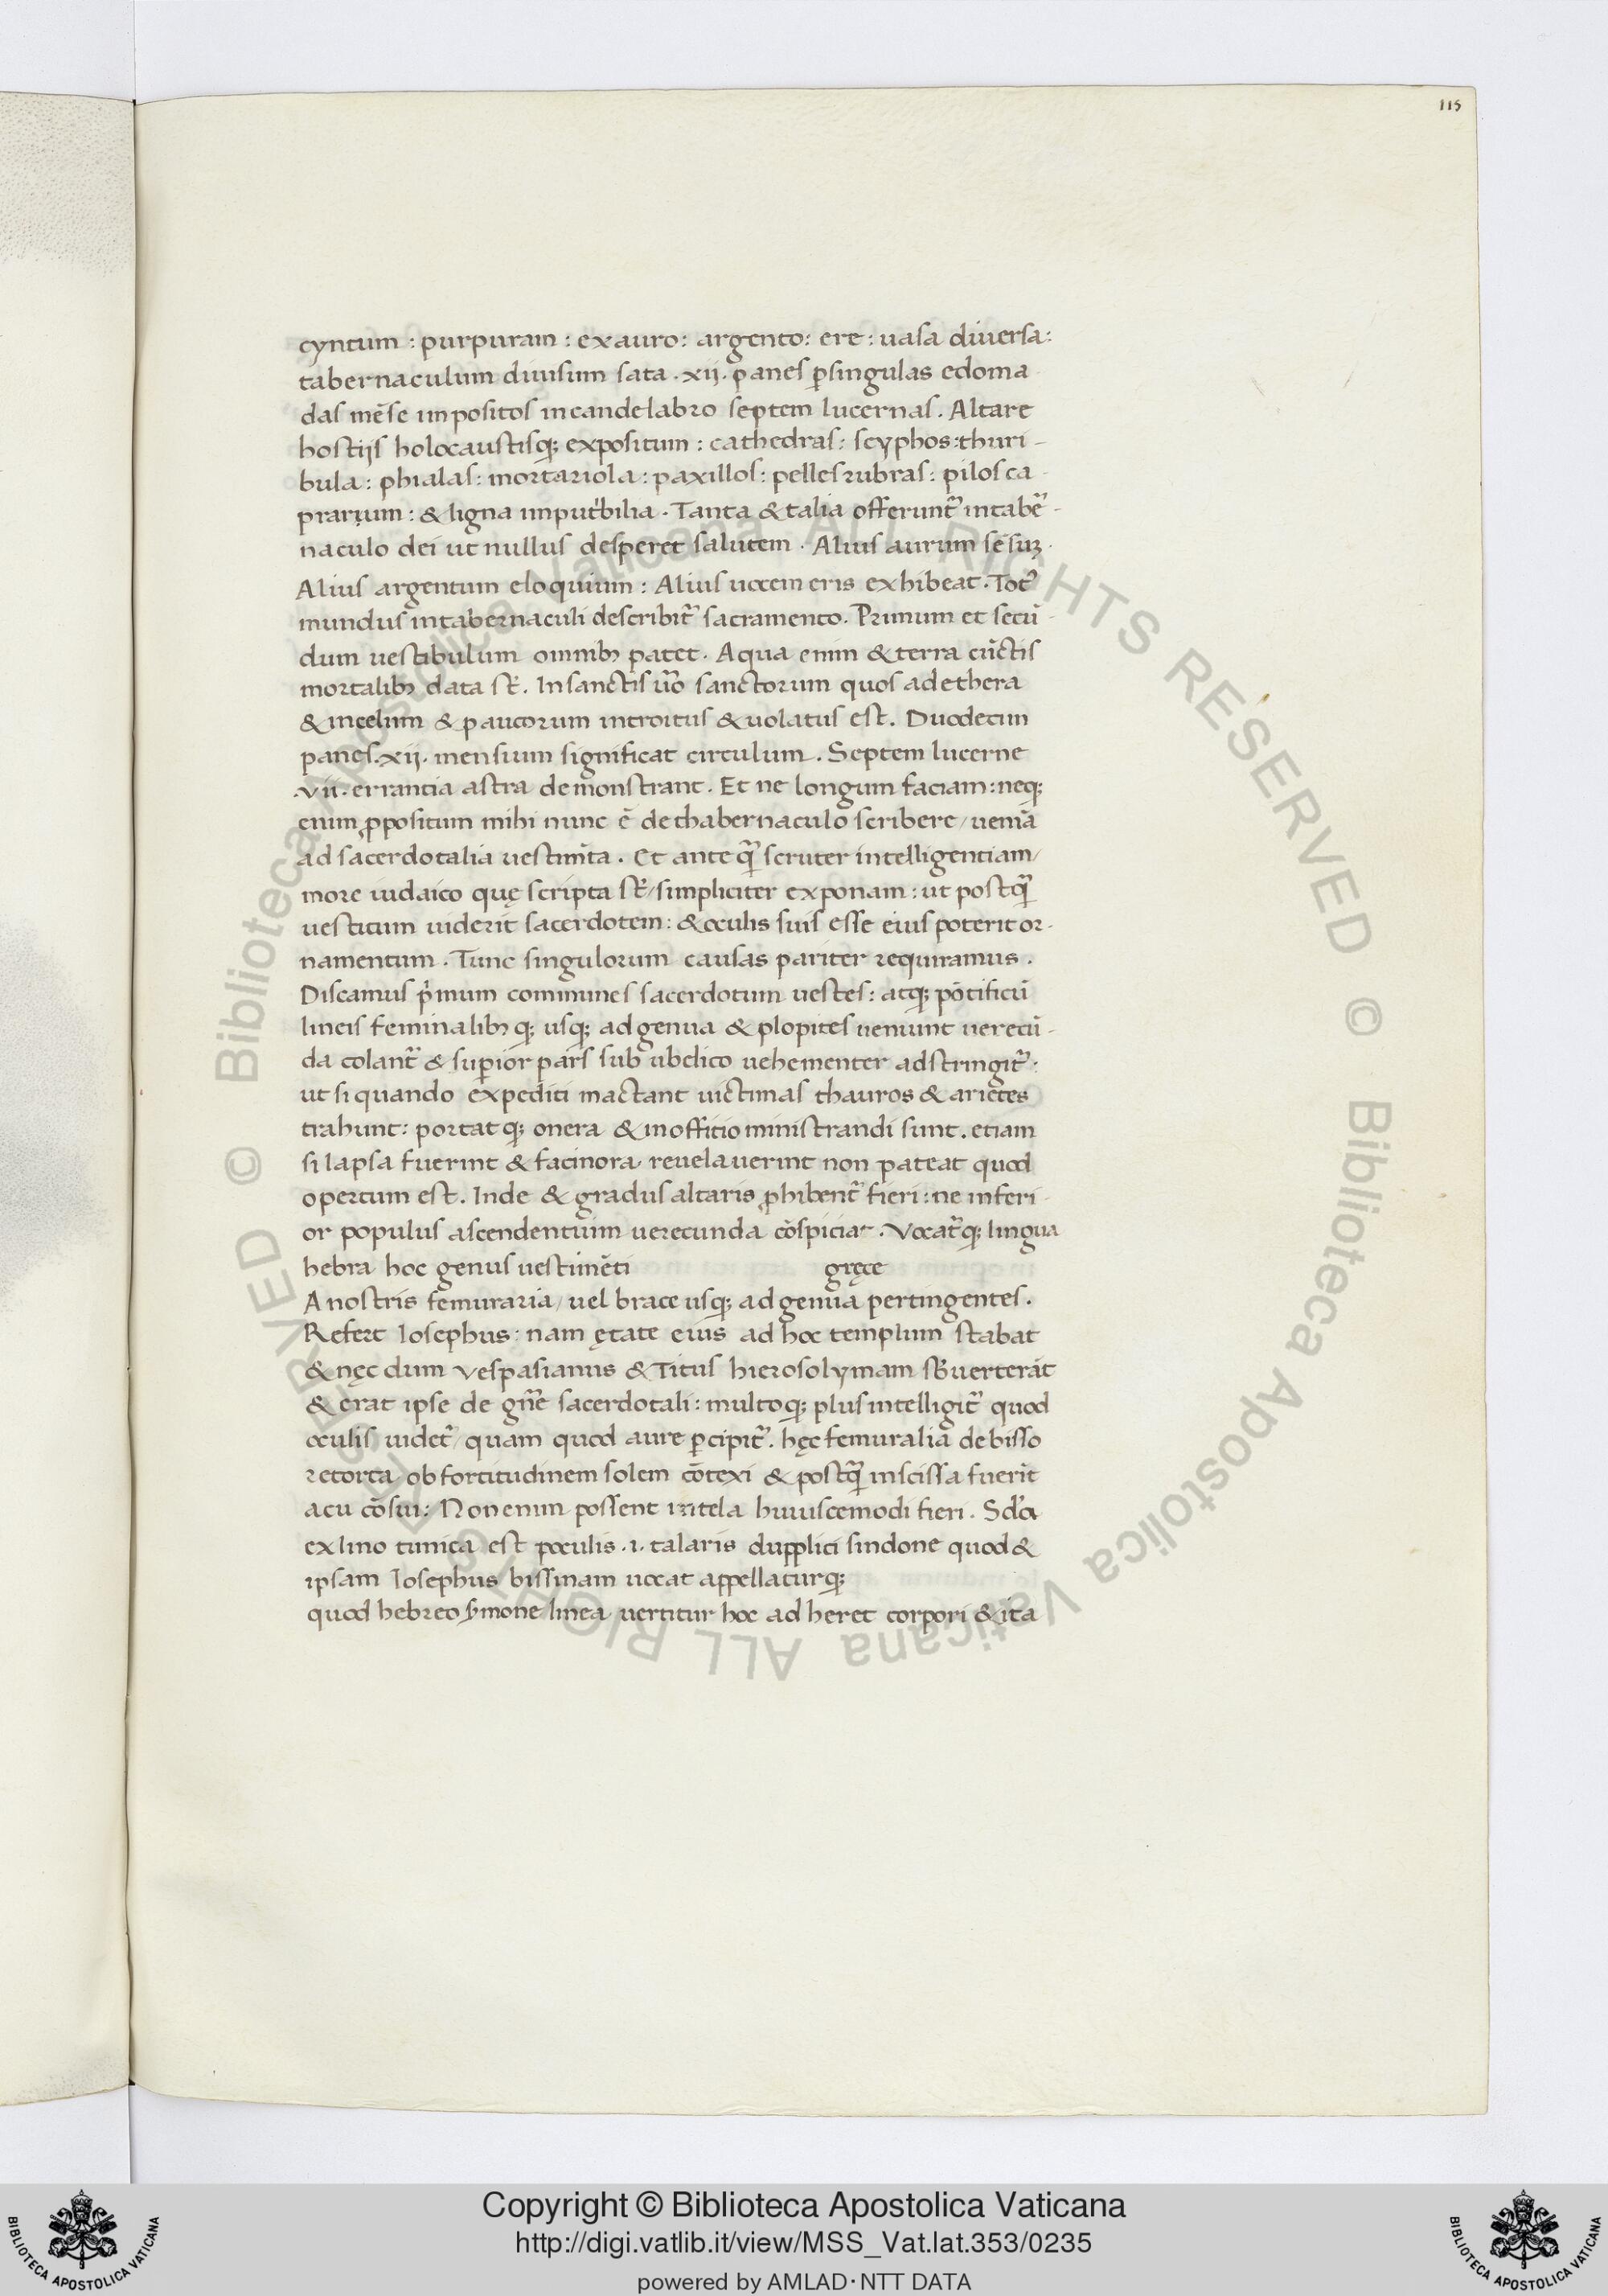 115
cyntum : purpuram : ex auro : argento : ere : uasa diuersa :
tabernaculum diuisum sata . xij . panes ꝑ singulas edoma
das mēse impositos in candelabro septem lucernas . Altare
hostijs holocaustisqꝫ expositum : cathedras : scyphos : thuri -
bula : phialas : mortariola : paxillos : pelles rubras : pilos ca
prarum : & ligna imputbilia . Tanta & talia offerunt᷑ in tabe᷑ -
naculo dei ut nullus desperet salutem . Alius aurum sēsuꝫ .
Alius argentum eloquium : Alius uocem eris exhibeat . Totꝰ
mundus in tabernaculi describit᷑ sacramento . Primum et secū -
dum uestibulum omnibꝫ patet . Aqua enim & terra cūctis
mortalibꝫ data st̄ . In sanctis ūo sanctorum quos ad ethera
& in celum & paucorum introitus & uolatus est . Duodecim
panes . xij . mensium significat circulum . Septem lucerne
. vii . errantia astra demonstrant . Et ne longum faciam : neqꝫ
enim ꝓpositum mihi nunc ē de thabernaculo scribere / ueniā
ad sacerdotalia uestimn̄ta . Et ante qᷓ scruter intelligentiam /
more iudaico quę scripta st̄ / simpliciter exponam : ut postqᷓ
uestitum uiderit sacerdotem : & oculis suis esse eius poterit or -
namentum . Tunc singulorum causas pariter requiramus .
Discamus pͥmum communes sacerdotum uestes : atqꝫ pōtificū
lineis feminalibꝫ qꝫ usqꝫ ad genua & plopites ueniunt uerecū -
da colant᷑ & suꝑior pars sub ubelico uehementer adstringit᷑ :
ut si quando expediti mactant uictimas thauros & arietes
trahunt : portat qꝫ onera & in offitio ministrandi sunt . etiam
si lapsa fuerint & facinora reuelauerint non pateat quod
opertum est . Inde & gradus altaris ꝓhibent᷑ fieri : ne inferi
or populus ascendentium uerecunda cōspiciat . Vocat᷑qꝫ lingua
hebra hoc genus uestimēti gręce
A nostris femuraria / uel brace usqꝫ ad genua pertingentes .
Refert Iosephus : nam ętate eius ad hoc templum stabat
& nęc dum Vespasianus & Titus hierosolymam sƀuerterāt
& erat ipse de gn̄e sacerdotali : multoqꝫ plus intelligit᷑ quod
oculis uidet᷑ / quam quod aure ꝑcipit᷑ . hęc femuralia de bisso
retorta ob fortitudinem solem cōtexi & postqᷓ inscissa fuerīt
acu cōsui : Non enim possent in tela huiuscemodi fieri . Sd̄a
ex lino tunica est poculis . i . talaris dupplici sindone quod &
ipsam Iosephus bissinam uocat appellaturqꝫ
quod hebreo s̄mone linea uertitur hoc ad heret corpori & ita
© Biblioteca Apostolica Vaticana ALL RIGHTS RESERVED © Biblioteca Apostolica Vaticana ALL RIGHTS RESERVED
BIBLIOTECA APOSTOLICA VATICANA
Copyright © Biblioteca Apostolica Vaticana
http://digi.vatlib.it/view/MSS_Vat.lat.353/0235
powered by AMLAD·NTT DATA
BIBLIOTECA APOSTOLICA VATICANA